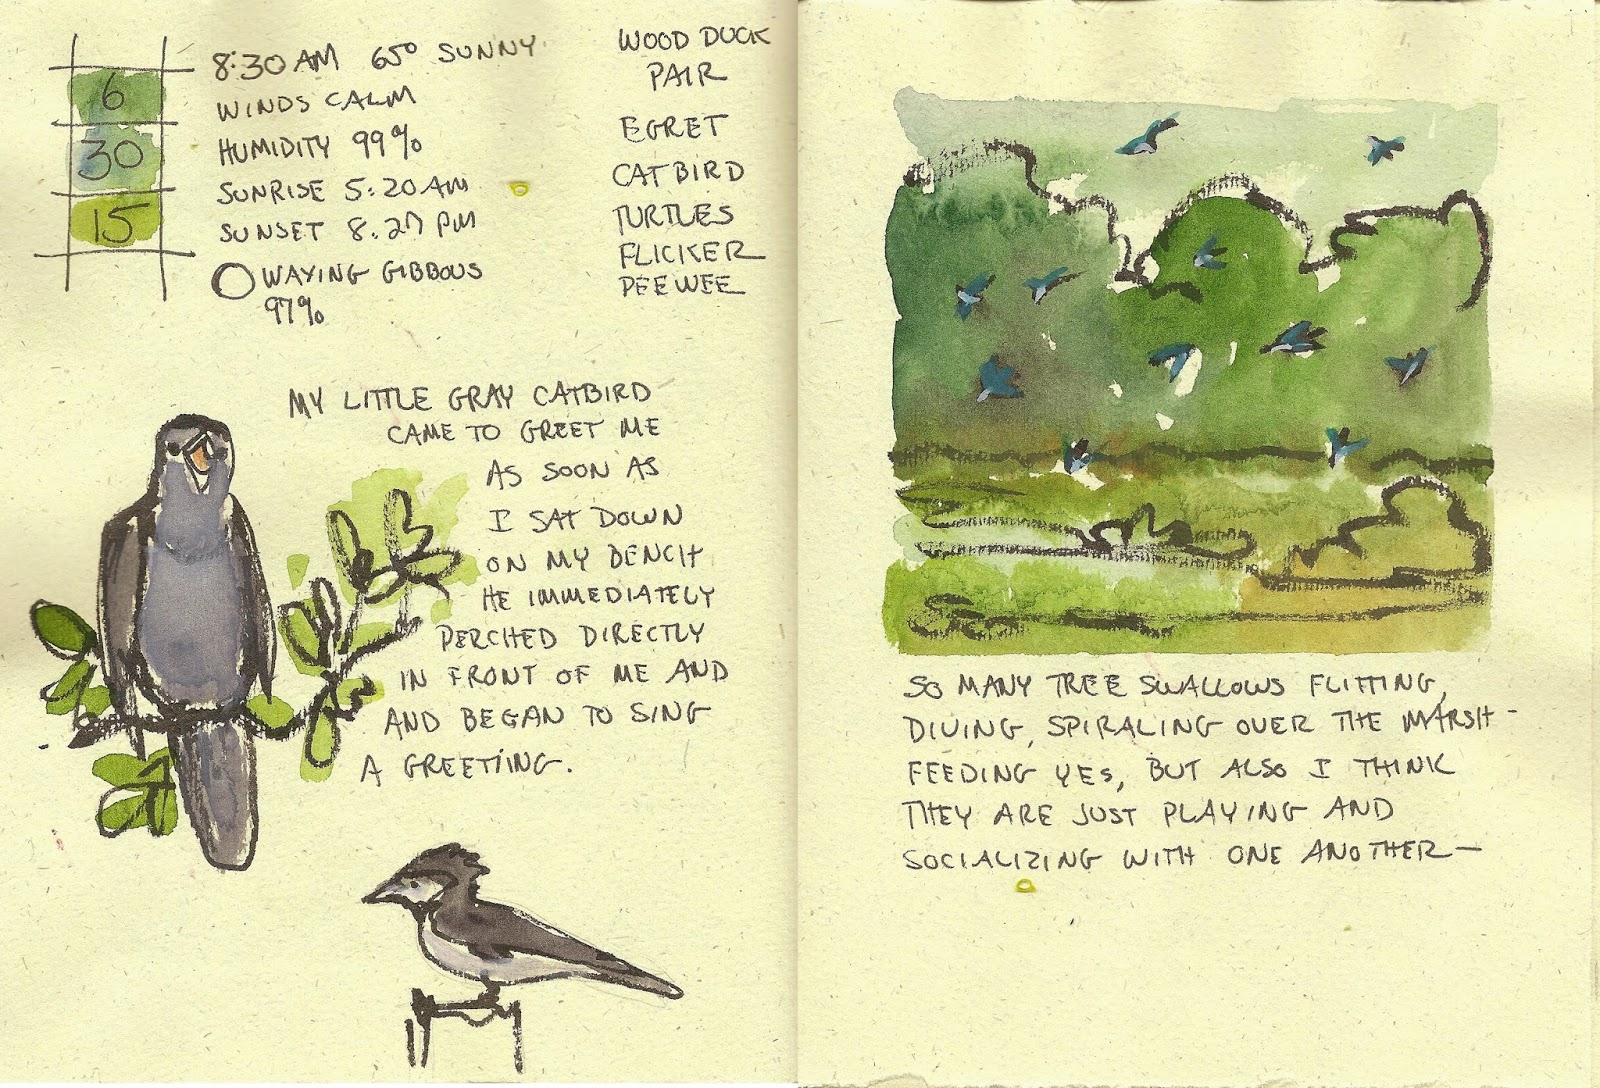 6
30
15
8:30 AM 65° SUNNY
WINDS CALM
HUMIDITY 99%
SUNRISE 5:20 AM
SUNSET 8.27 PM
WAXING GIBBOUS
97%
WOOD DUCK
PAIR
EGRET
CATBIRD
TURTLES
FLICKER
PEEWEE
MY LITTLE GRAY CATBIRD
CAME TO GREET ME
AS SOON AS
I SAT DOWN
ON MY BENCH
HE IMMEDIATELY
PERCHED DIRECTLY
IN FRONT OF ME AND
AND BEGAN TO SING
A GREETING.
SO MANY TREE SWALLOWS FLITTING,
DIVING, SPIRALING OVER THE MARSH -
FEEDING YES, BUT ALSO I THINK
THEY ARE JUST PLAYING AND
SOCIALIZING WITH ONE ANOTHER —